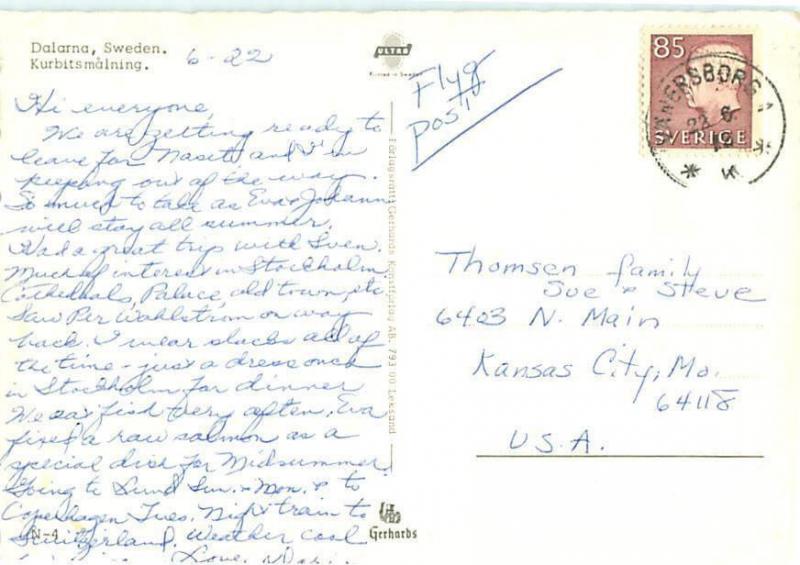 Dalarna, Sweden.
Kurbitsmålning.
6-22
Hi everyone,
We are getting ready to
leave for and I'm
keeping out of the way.
So much to take as Eva & Johann
will stay all summer.
Had a great trip with Sven.
Much of interest in Stockholm
Cathedrals, Palace, old town, etc
Saw Per Wahlstrom on way
back. I wear slacks all of
the time - just a dress once
in Stockholm for dinner
We eat fish very often. Eva
fixed a raw salmon as a
special dish for Midsummer.
Going to Lund Sun. & Mon. & to
Copenhagen Tues. Night train to
Switzerland. Weather cool
Love,
N-4
ULTRA
Printed in Sweden
Förlagsrätt: Gerhards Konstförlag AB, 793 00 Leksand
Gerhards
Flyg
post
85
SVERIGE
VÄNERSBORG 1
Thomsen family
Sue & Steve
6403 N. Main
Kansas City, Mo.
64118
U.S.A.